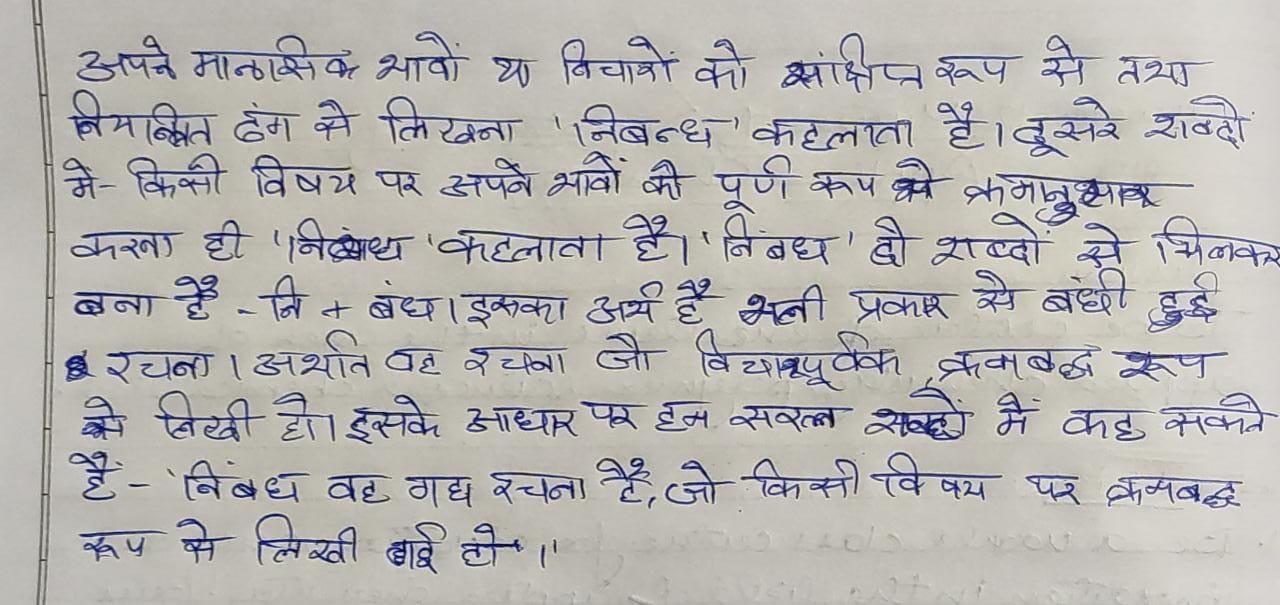 अपने मानसिक भावों या विचारों को सांक्षिप्त रूप से तथा
नियन्त्रित ढंग से लिखना 'निबन्ध' कहलाता है। दूसरे शब्दों
मे- किसी विषय पर अपने भावों को पूर्ण रूप से क्रमानुसार
करना ही 'निबंध' कहलाता है। 'निबंध' दो शब्दों से मिलकर
बना है - नि + बंध। इसका अर्थ है भली प्रकार से बंधी हुई
रचना। अर्थात वह रचना जो विचारपूर्वक, क्रमबद्ध रूप
से लिखी हो। इसके आधार पर हम सरल शब्दों में कह सकते
हैं - 'निबंध वह गद्य रचना है, जो किसी विषय पर क्रमबद्ध
रूप से लिखी गई हो।'